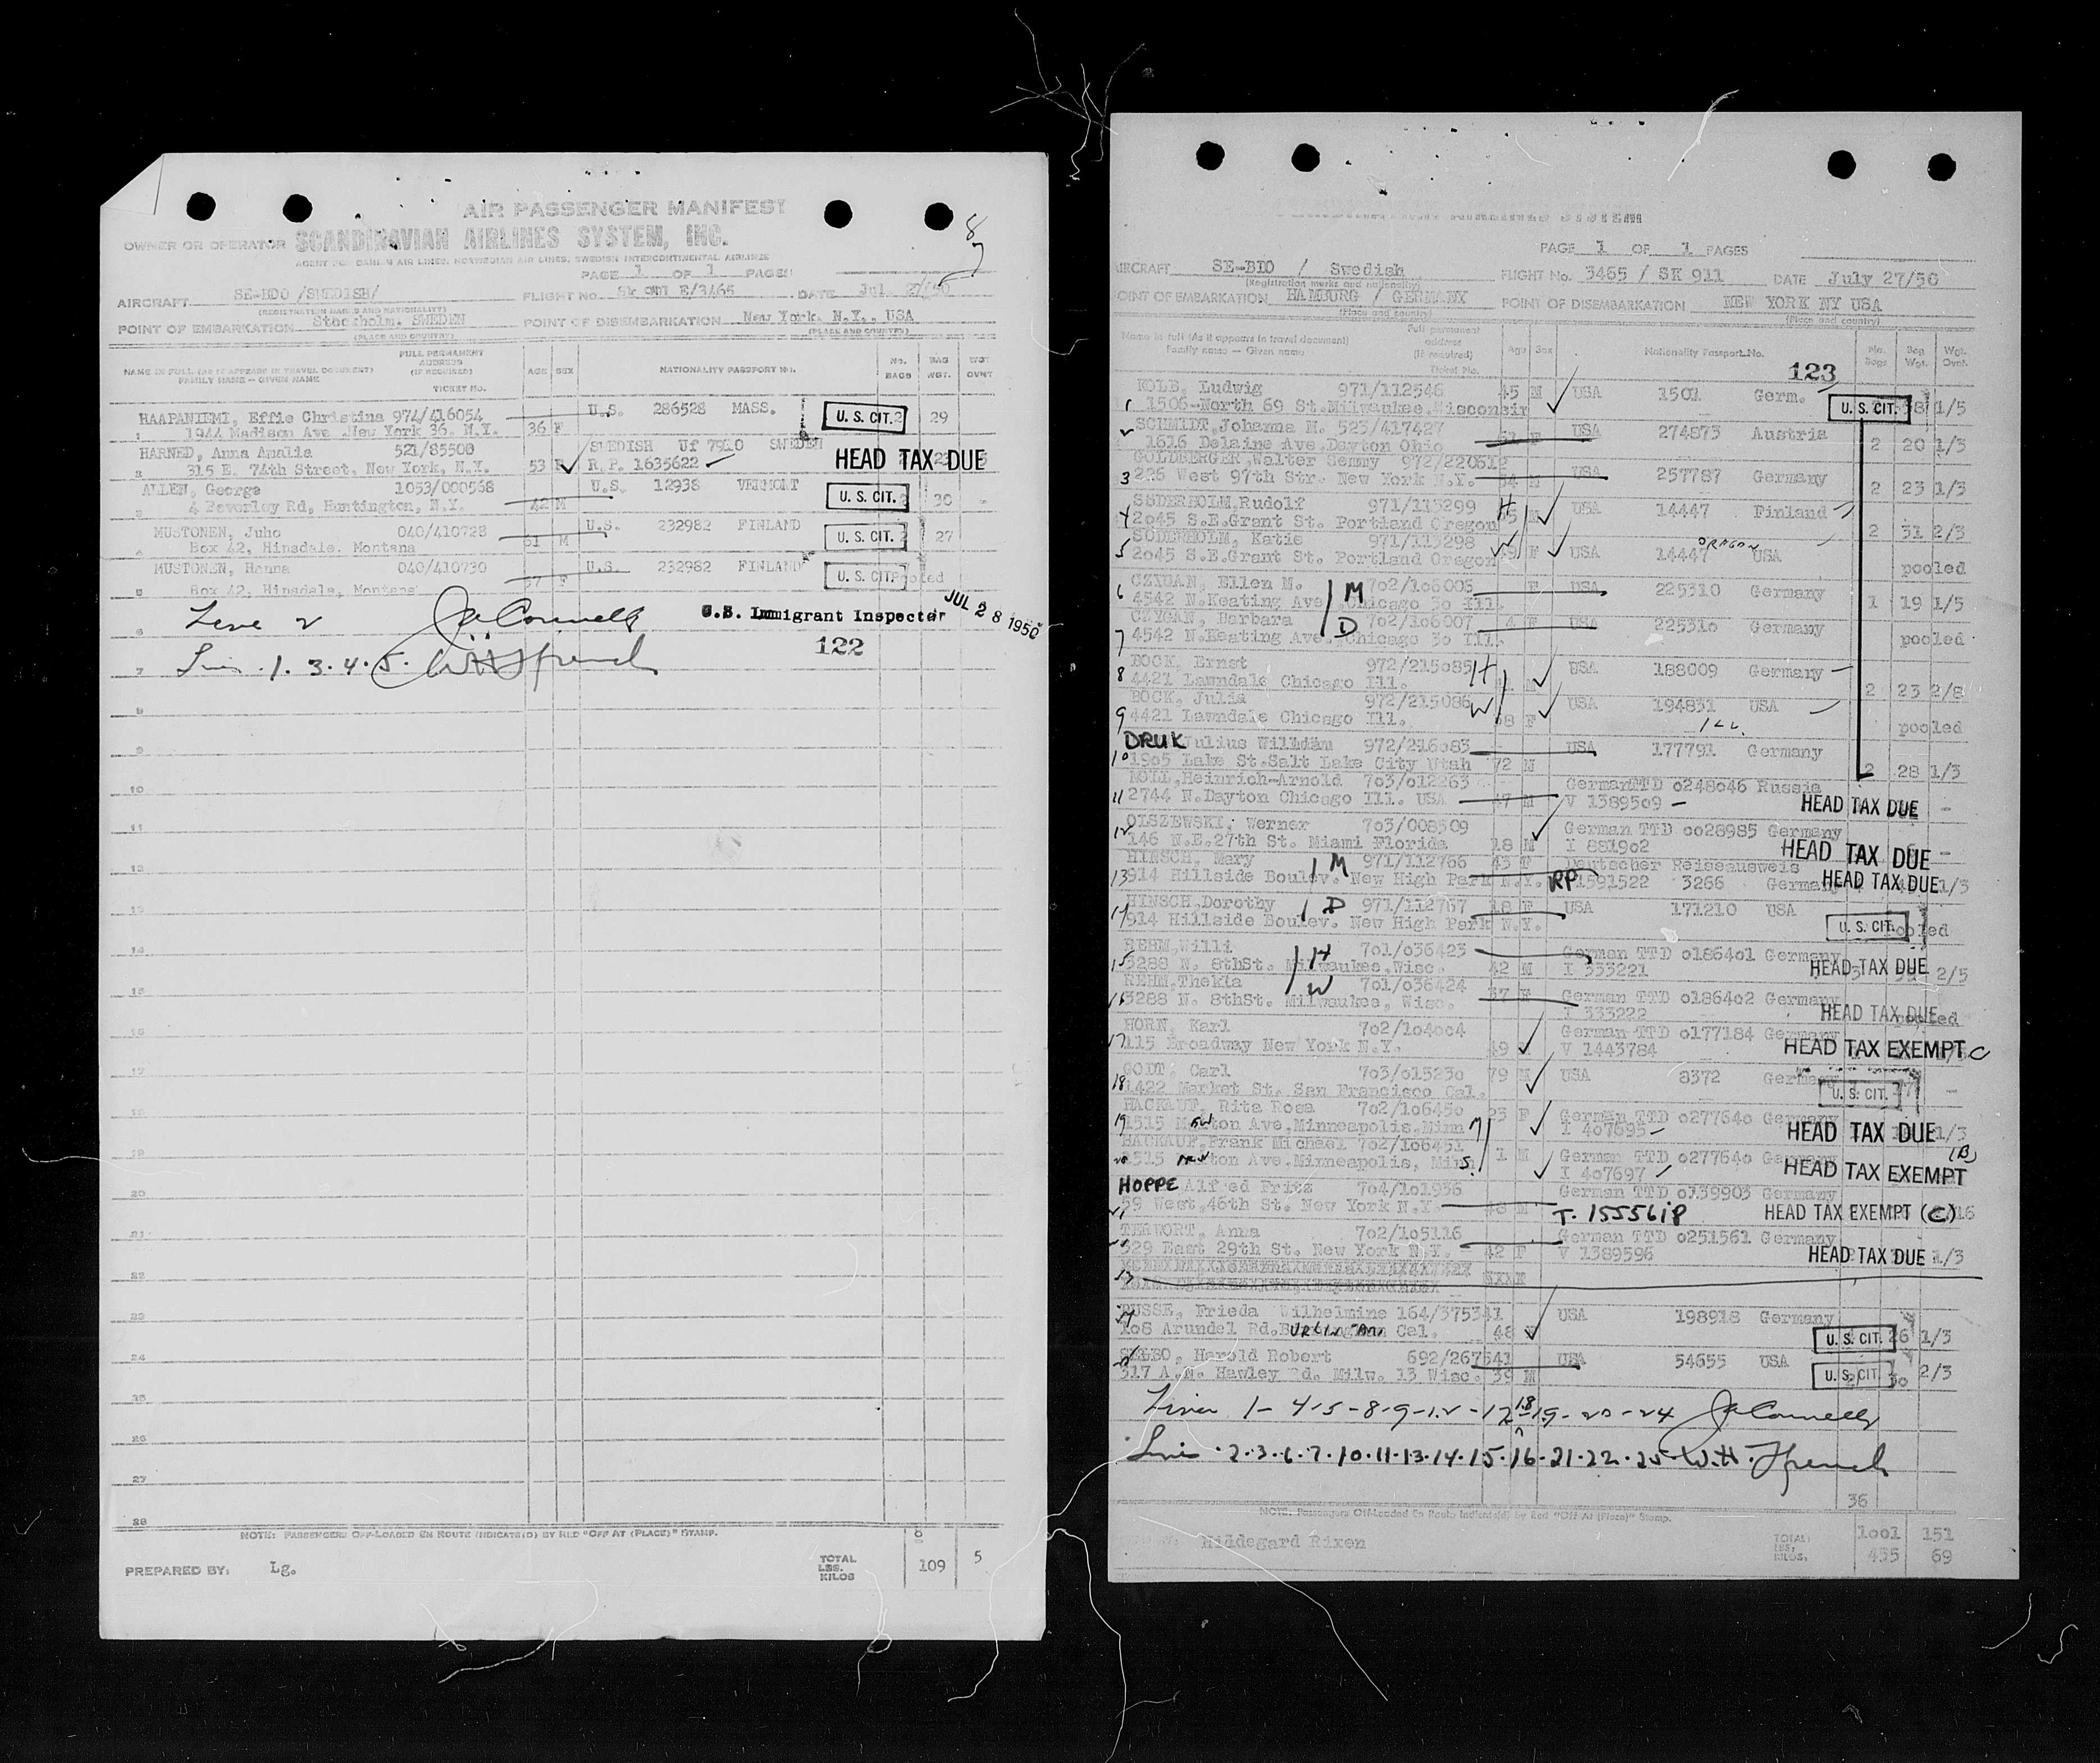 AIR PASSENGER MANIFEST
OWNER OR OPERATOR SCANDINAVIAN AIRLINES SYSTEM, INC.
AGENT FOR DANISH AIR LINES, NORWEGIAN AIR LINES, SWEDISH INTERCONTINENTAL AIRLINES
PAGE 1 OF 1 PAGES
AIRCRAFT SE-BDO /SWEDISH/ FLIGHT NO. E/3465 DATE Jul 27/50
(REGISTRATION MARKS AND NATIONALITY)
POINT OF EMBARKATION Stockholm, SWEDEN POINT OF DISEMBARKATION New York, N.Y., USA
(PLACE AND COUNTRY) (PLACE AND COUNTRY)
NAME IN FULL (AS IT APPEARS IN TRAVEL DOCUMENT) FAMILY NAME - GIVEN NAME FULL PERMANENT ADDRESS (IF REQUIRED) TICKET NO. AGE SEX NATIONALITY PASSPORT NO. NO. BAGS BAG WGT. WGT OVWT
HAAPANIEMI, Effie Christina 974/416054 U.S. 286528 MASS. U. S. CIT. 2 29
1 1944 Madison Ave New York 36, N.Y. 36 F
HARNED, Anna Amalia 521/85500 SWEDISH Uf 7910 SWEDEN
2 315 E. 74th Street, New York, N.Y. 53 F R.P. 1635622 HEAD TAX DUE
ALLEN, George 1053/000568 U.S. 12938 VERMONT U. S. CIT. 2 30 -
3 4 Beverley Rd, Huntington, N.Y. 42 M
MUSTONEN, Juho 040/410728 U.S. 232982 FINLAND U. S. CIT. 2 27
4 Box 42, Hinsdale, Montana 61 M
MUSTONEN, Hanna 040/410730 U.S. 232982 FINLAND U. S. CIT. pooled
5 Box 42, Hinsdale, Montana 57 F
6 Line 2 U.S. Immigrant Inspector JUL 28 1950
122
7 Lines 1. 3. 4. 5. W.H. French
8
9
10
11
12
13
14
15
16
17
18
19
20
21
22
23
24
25
26
27
28
NOTE: PASSENGERS OFF-LOADED EN ROUTE INDICATE(D) BY RED "OFF AT (PLACE)" STAMP.
PREPARED BY: Lg. TOTAL LBS. KILOS 8 109 5
PAGE 1 OF 1 PAGES
AIRCRAFT SE-BDO / Swedish FLIGHT No. 3465 / SK 911 DATE July 27/50
(Registration marks and nationality)
POINT OF EMBARKATION HAMBURG / GERMANY POINT OF DISEMBARKATION NEW YORK NY USA
(Place and country) (Place and country)
Name in full (As it appears in travel document) Family name — Given name Full permanent address (if required) Ticket No. Age Sex Nationality Passport No. No. Bags Bag Wgt. Wgt. Ovwt.
123
KOLB, Ludwig 971/112546 45 M USA 1501 Germ.
1 1506-North 69 St.Milwaukee.Wisconsin U. S. CIT. 38 1/5
SCHMIDT,Johanna M. 523/417427 USA 274873 Austria
2 1616 Delaine Ave.Dayton Ohio 2 20 1/3
GOLDBERGER,Walter Semmy 972/220612 USA 257787 Germany
3 226 West 97th Str. New York N.Y. 54 M 2 23 1/3
SÖDERHOLM,Rudolf 971/113299 H USA 14447 Finland
4 2045 S.E.Grant St. Portland Oregon M 2 31 2/3
SÖDERHOLM, Katie 971/113298 W F USA 14447 USA OREGON
5 2045 S.E.Grant St. Portland Oregon pooled
CZYGAN, Ellen M. M 702/106005 F USA 225310 Germany
6 4542 N.Keating Ave. Chicago 30 Ill. 1 19 1/5
CZYGAN, Barbara 702/106007 4 F USA 225310 Germany
7 4542 N.Keating Ave. D Chicago 30 Ill. pooled
BOCK, Ernst 972/215085 H USA 188009 Germany
8 4421 Lawndale Chicago Ill. M 2 23 2/8
BOCK, Julia 972/215086 W USA 194831 USA
9 4421 Lawndale Chicago Ill. 58 F ILL. pooled
DRUK Julius Willdam 972/216083 USA 177791 Germany
10 1905 Lake St.Salt Lake City Utah 72 M 2 28 1/3
NOLL,Heinrich-Arnold 703/012263 German TTD 0248046 Russia
11 2744 N.Dayton Chicago Ill. USA 47 M V 1389509 HEAD TAX DUE -
OLSZEWSKI, Werner 703/008509 German TTD 0028985 Germany
12 146 N.E.27th St. Miami Florida 18 M I 881902 HEAD TAX DUE -
HINSCH, Mary M 971/112766 43 F Deutscher Reiseausweis
13 914 Hillside Boulev. New High Park N.Y. RP 1591522 3266 Germany HEAD TAX DUE 1/3
HINSCH,Dorothy D 971/112767 18 F USA 171210 USA
14 914 Hillside Boulev. New High Park N.Y. U. S. CIT. pooled
REHM,Willi H 701/036423 German TTD 0186401 Germany
15 3288 N. 8thSt. Milwaukee,Wisc. 42 M I 333221 HEAD TAX DUE 2/5
REHM,Thekla W 701/036424 37 F German TTD 0186402 Germany
16 3288 N. 8thSt. Milwaukee, Wisc. I 333222 HEAD TAX DUE pooled
HORN, Karl 702/104004 German TTD 0177184 Germany
17 115 Broadway New York N.Y. 49 V 1443784 HEAD TAX EXEMPT C
GODT, Carl 703/015230 79 M USA 8372 Germany
18 1422 Market St. San Francisco Cal. U. S. CIT. -
HACKAUF, Rita Rosa 702/106450 23 F German TTD 0277640 Germany
19 1515 Newton Ave.Minneapolis.Minn M I 407695 HEAD TAX DUE 1/3
HACKAUF,Frank Michael 702/106451 1 M German TTD 0277640 Germany (B)
20 1515 Newton Ave.Minneapolis, Minn S. I 407697 HEAD TAX EXEMPT
HOPPE Alfred Fritz 704/101936 German TTD 0739903 Germany
21 59 West 46th St. New York N.Y. 48 M T. 1555618 HEAD TAX EXEMPT (C)
TERWORT, Anna 702/105116 German TTD 0251561 Germany
22 329 East 29th St. New York N.Y. 42 F V 1389596 HEAD TAX DUE 1/3
23
BUSSE, Frieda Wilhelmine 164/375341 USA 198918 Germany
24 108 Arundel Rd. Cal. 48 F U. S. CIT. 26 1/3
SELBO, Harold Robert 692/267541 USA 54655 USA
25 317 A.N. Hawley Rd. Milw. 13 Wisc. 39 M U. S. CIT. 30 2/3
Lines 1- 4-5-8-9-12-17-18-19-20-24
Lines 2.3.6.7.10.11.13.14.15.16.21.22.25 W.H. French
36
NOTE: Passengers Off-Loaded En Route Indicate(d) by Red "Off At (Place)" Stamp.
Hildegard Rixen TOTAL: LBS. KILOS. 1001 151
455 69